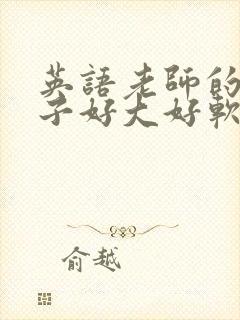 英語老師的
子好大好軟
俞越